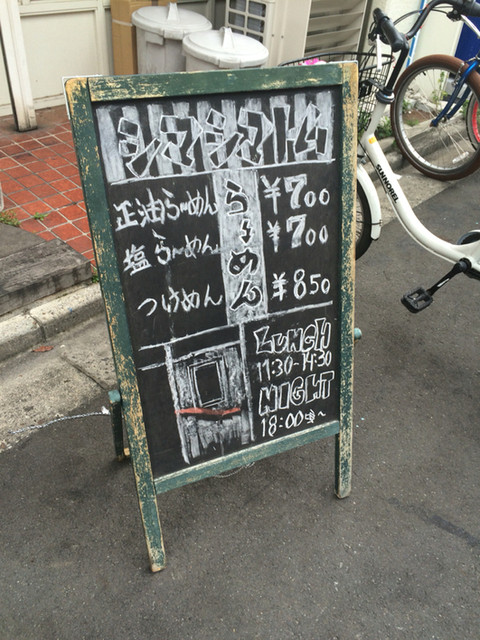 シマシマトム
らーめん
正油らーめん ¥700
塩らーめん ¥700
つけめん ¥850
LUNCH
11:30-14:30
NIGHT
18:00〜